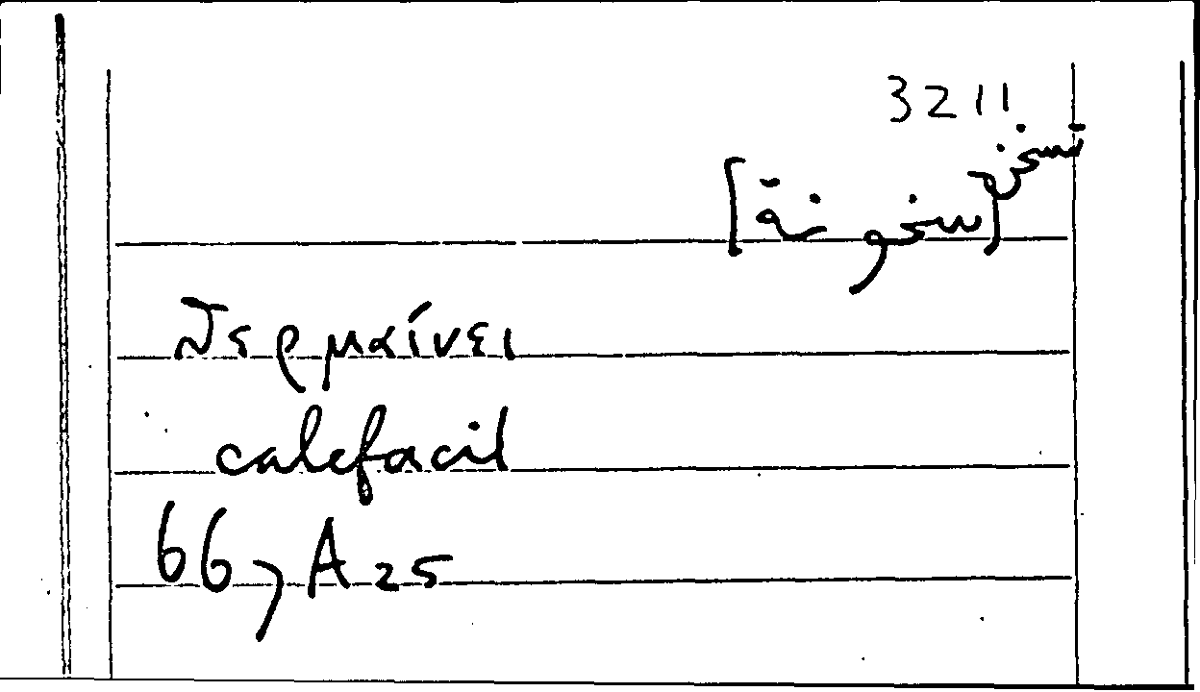 3211
تسخن [سخونة]
ϑερμαίνει
calefacit
66, A 25